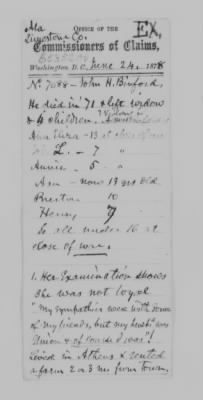 Ala
OFFICE OF THE
Ex.
Limestone Co.
Commissioners of Claims,
Washington, D.C., June 24, 1878
No. 7088 - John H. Binford,
He died in '71 & left widow
& 9 children.
13 at close of war
L. - 7 "
Annie - 5 "
now 13 yrs old
Preston 10
Henry 7
So all under 16 at
close of war.
1. Her Examination shows
she was not loyal
"My sympathies were with some
of my friends, but my husbd was
Union & of course I was"
Lived in Athens & rented
a farm 2 or 3 mi from town.